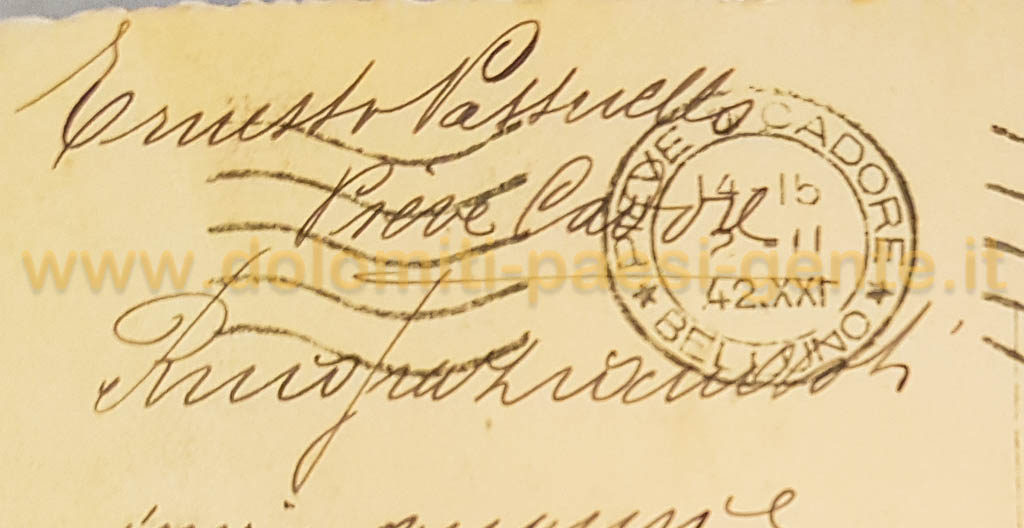 Ernesto Vassuello
Pieve Cadore
PIEVE DI CADORE
14-15
2-11
42.XXI
BELLUNO
www.dolomiti-paesi-gente.it
Ringraziamenti